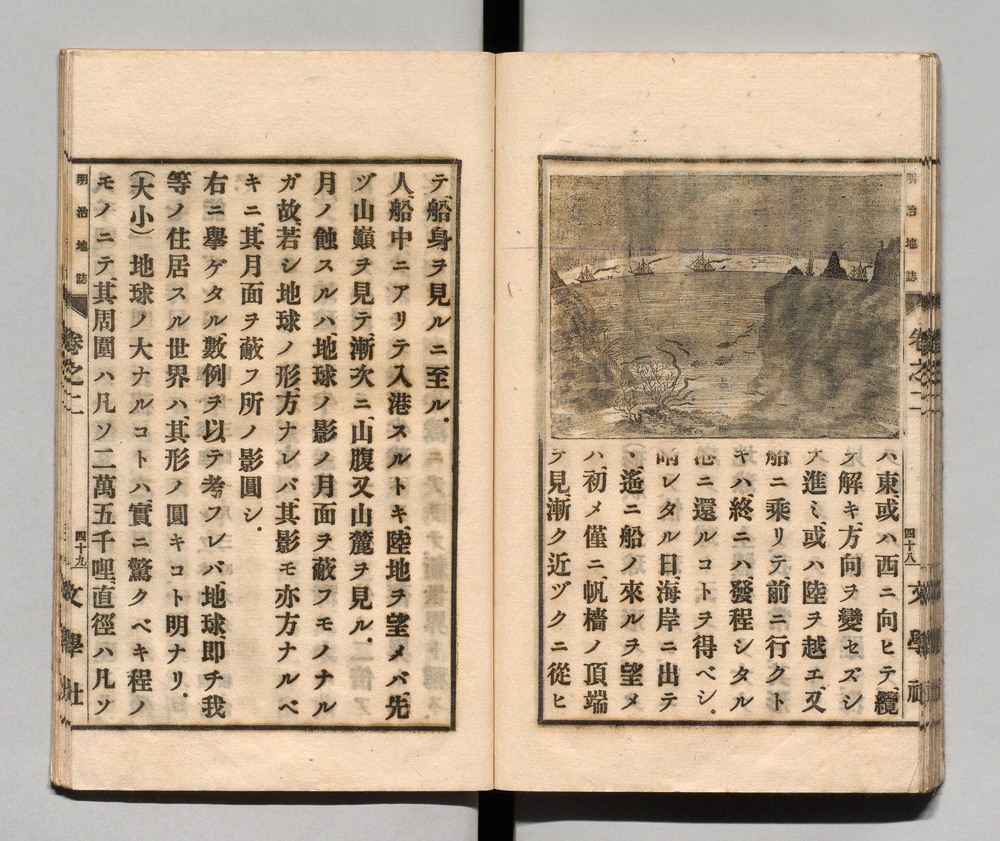 明治地誌
卷之二
四十八
文學社
ハ、東或ハ西ニ向ヒテ、纜
ヲ解キ、方向ヲ變セズシ
テ進ミ、或ハ陸ヲ越エ、又
船ニ乘リテ、前ニ行クト
キハ、終ニハ發程シタル
港ニ還ルコトヲ得ベシ。
晴レタル日、海岸ニ出テ
、遙ニ船ノ來ルヲ望メ
ハ、初メ僅ニ、帆檣ノ頂端
ヲ見、漸ク近ヅクニ從ヒ
テ、船身ヲ見ルニ至ル。
人、船中ニアリテ入港スルトキ、陸地ヲ望メバ、先
ヅ山巓ヲ見テ、漸次ニ、山腹又山麓ヲ見ル。
月ノ蝕スルハ、地球ノ影ノ月面ヲ蔽フモノナル
ガ故、若シ地球ノ形、方ナレバ、其影モ亦方ナルベ
キニ、其月面ヲ蔽フ所ノ影圓シ。
右ニ擧ゲタル、數例ヲ以テ考フレバ、地球、即チ我
等ノ住居スル世界ハ、其形ノ圓キコト明ナリ。
(大小) 地球ノ大ナルコトハ、實ニ驚クベキ程ノ
モノニテ、其周圍ハ凡ソ二萬五千哩、直徑ハ凡ソ
明治地誌
卷之二
四十九
文學社